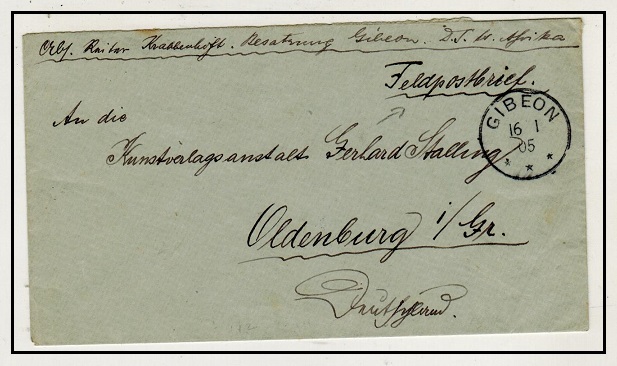 Abs. Reiter Krabbenhöft. Besatzung Gibeon. D. S. W. Afrika
Feldpostbrief.
GIBEON
16 1
05
An die
Kunstverlagsanstalt Gerhard Stalling
Oldenburg i/Gr.
Deutschland.